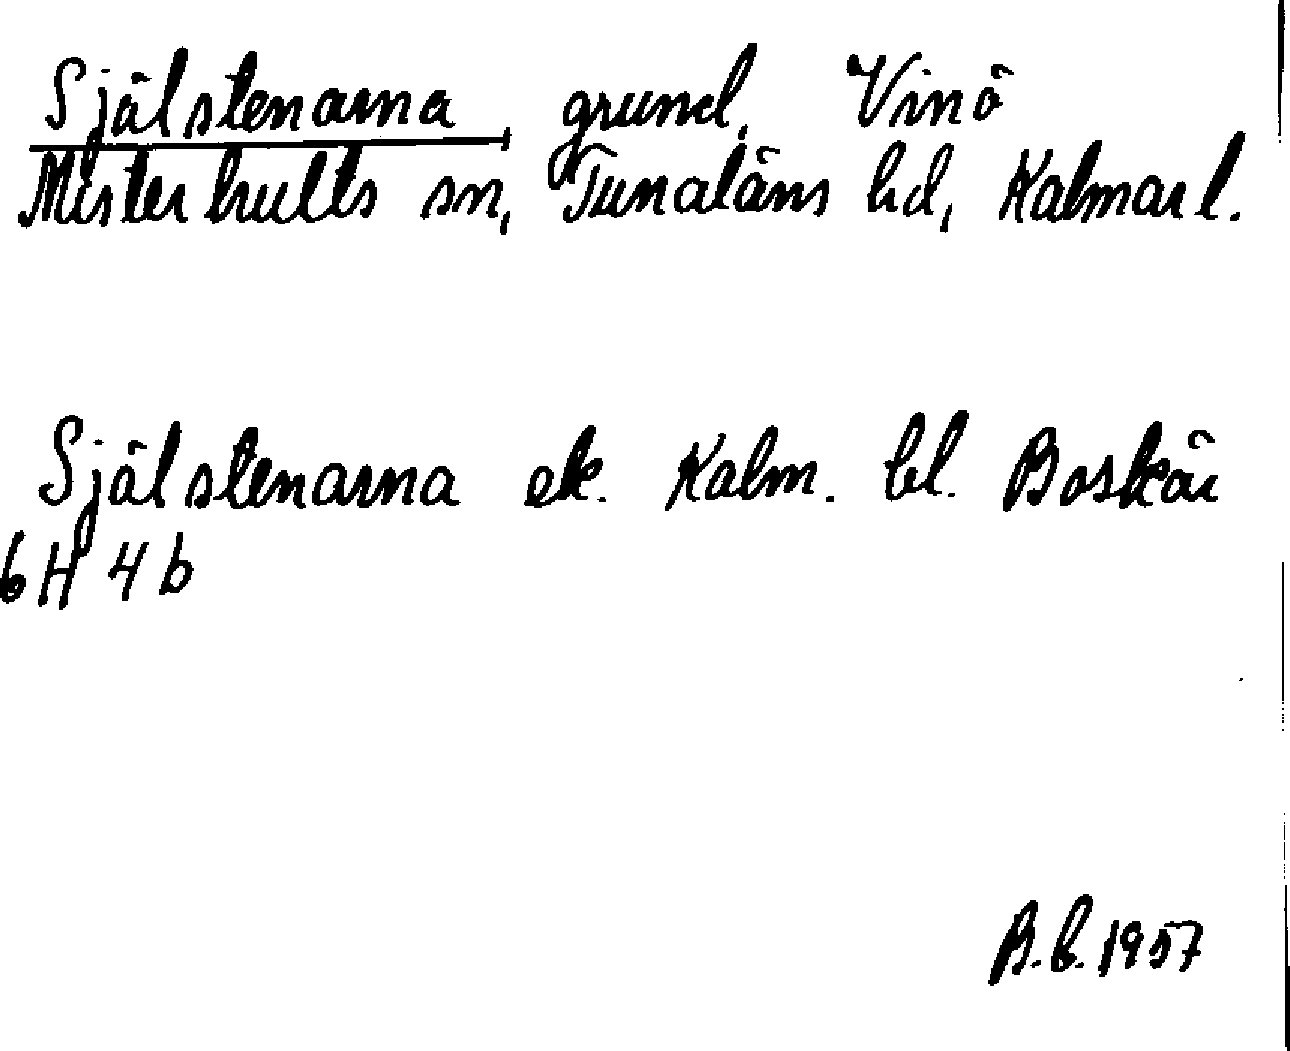 Själstenarna, grund, Vinö
Misterhults sn, Tunaläns hd, Kalmar l.
Själstenarna ek. Kalm. bl. Boskär
6H 4b
B.b. 1957